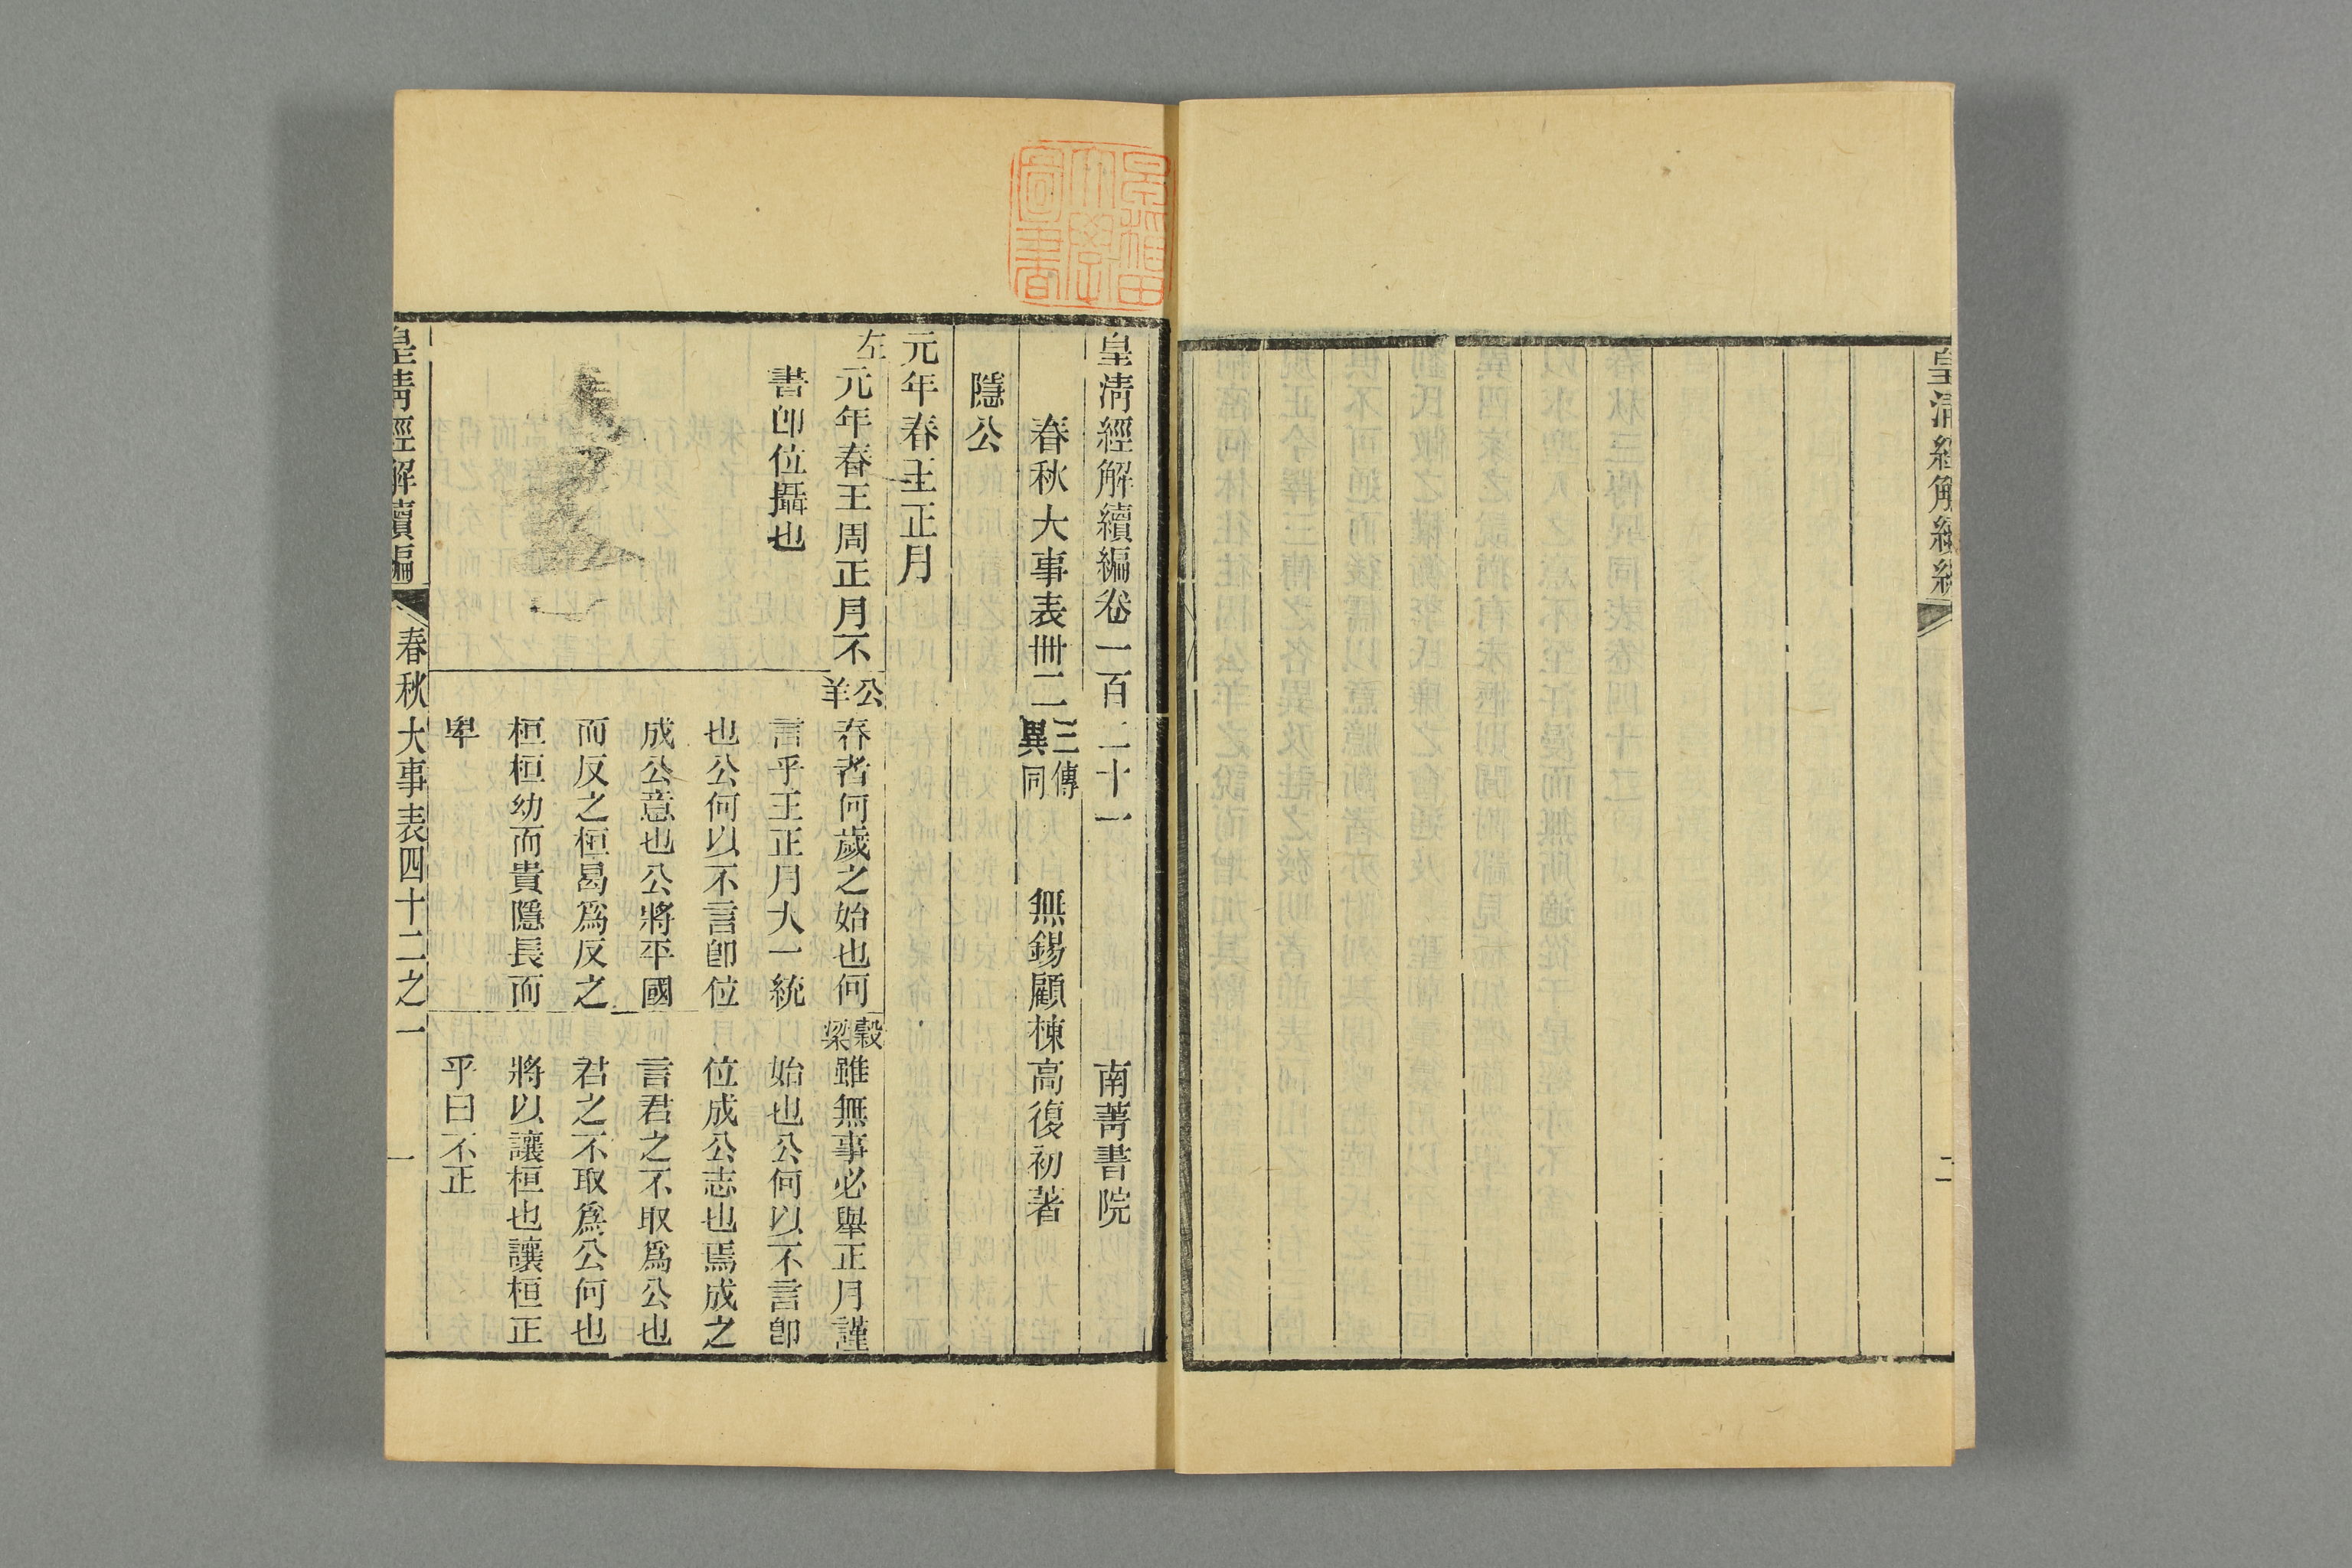 皇清經解續編
二
早稲田大學圖書
皇清經解續編卷一百二十一
南菁書院
春秋大事表卌二
三傳異同
無錫顧棟高復初著
隱公
元年春王正月
左
元年春王周正月不
書卽位攝也
公羊
春者何歲之始也何
言乎王正月大一統
也公何以不言卽位
成公意也公將平國
而反之桓曷爲反之
桓桓幼而貴隱長而
卑
穀梁
雖無事必舉正月謹
始也公何以不言卽
位成公志也焉成之
言君之不取爲公也
君之不取爲公何也
將以讓桓也讓桓正
乎曰不正
皇清經解續編
春秋大事表四十二之一
一